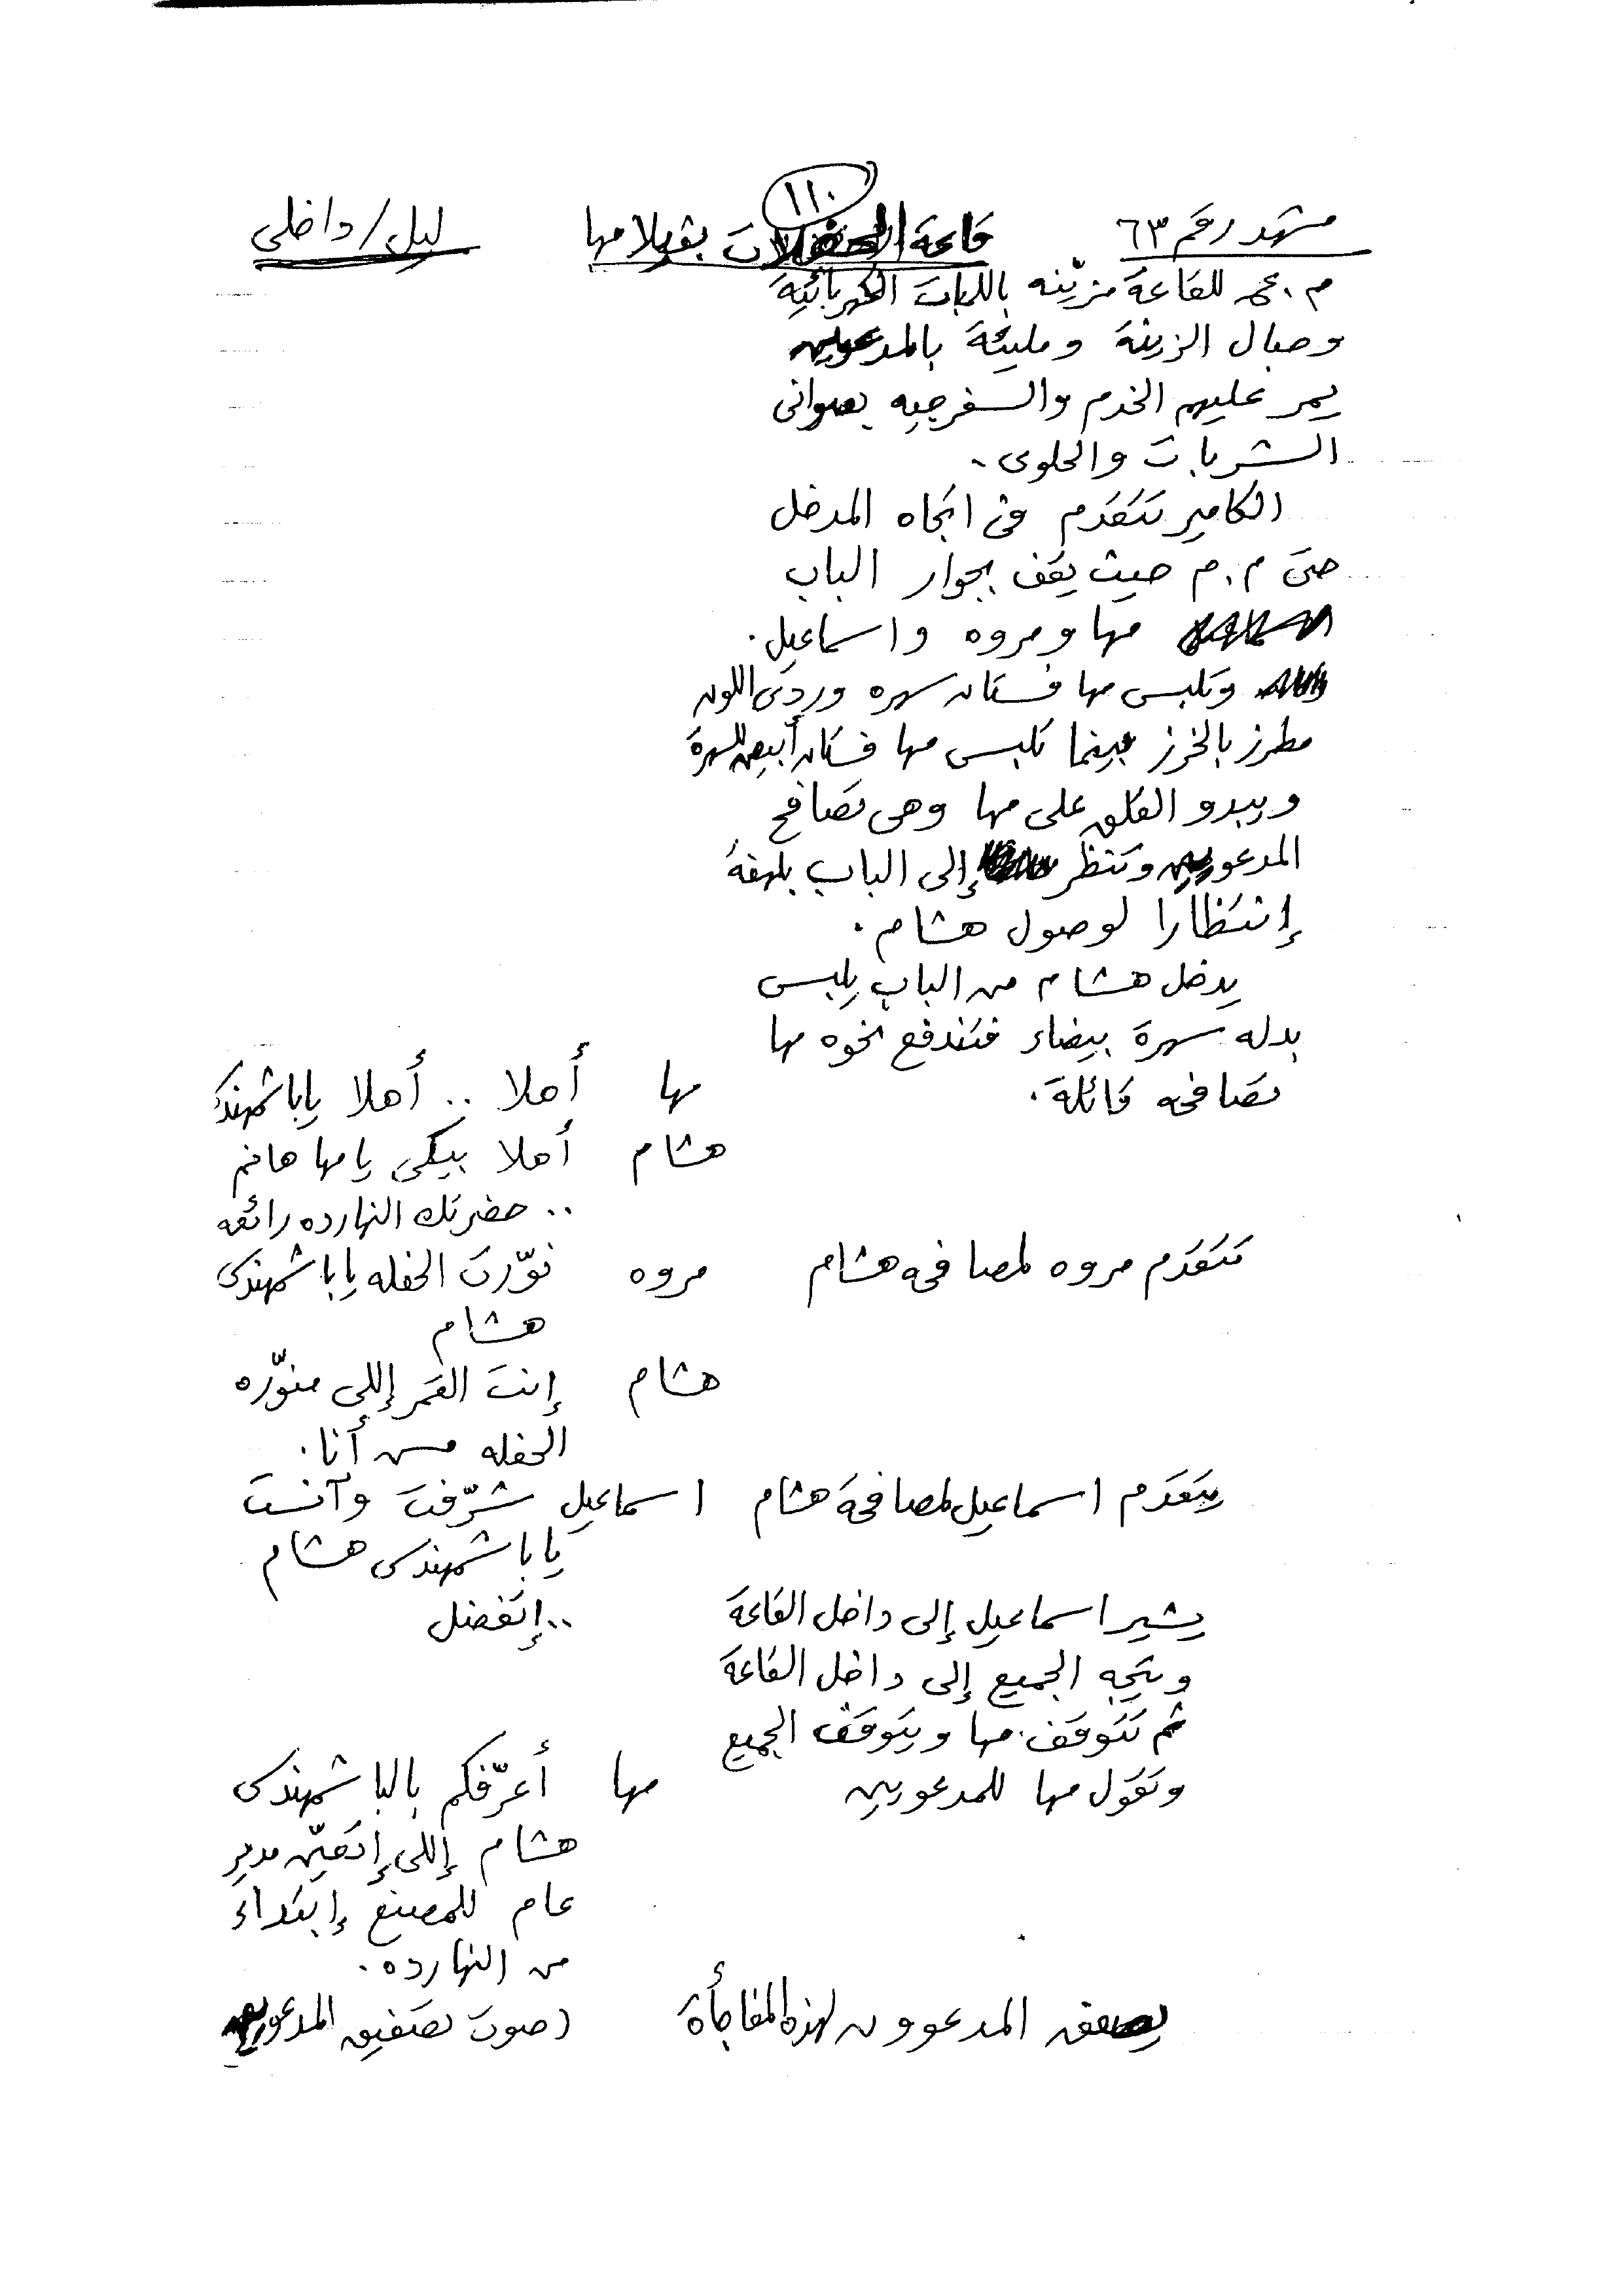 ١١٠
مشهد رقم ٦٣ قاعة الحفلات بڤيلا مها ليل/داخلى
م.عـ للقاعة مزيّنه باللمبات الكهربائية
وحبال الزينة ومليئة بالمدعوين
يمر عليهم الخدم والسفرجيه بصوانى
الشربات والحلوى.
الكاميرا تتقدم فى اتجاه المدخل
حتى م.م حيث يقف بجوار الباب
مها ومروه واسماعيل.
وتلبس مها فستان سهره وردى اللون
مطرز بالخرز بينما تلبس مها فستان أبيض للسهرة
ويبدو القلق على مها وهى تصافح
المدعوين وتنظر إلى الباب بلهفة
إنتظارا لوصول هشام.
يدخل هشام من الباب يلبس
بدله سهرة بيضاء فتندفع نحوه مها
تصافحه قائلة. مها أهلا .. أهلا ياباشمهندس
هشام أهلا بيكى يا مها هانم
.. حضرتك النهارده رائعه
تتقدم مروه لمصافحه هشام مروه نوّرت الحفله ياباشمهندس
هشام
هشام إنت القمر إللى منوّره
الحفله مش أنا.
يتقدم اسماعيل لمصافحة هشام اسماعيل شرّفت وآنست
ياباشمهندس هشام
يشير اسماعيل إلى داخل القاعة ..إتفضل
ويتجه الجميع إلى داخل القاعة
ثم تتوقف مها ويتوقف الجميع
وتقول مها للمدعويين مها أعرّفكم بالباشمهندس
هشام إللى إتعيّن مدير
عام للمصنع إبتداء
من النهارده.
يصفق المدعوون لهذه المفاجأة (صوت تصفيق المدعوين